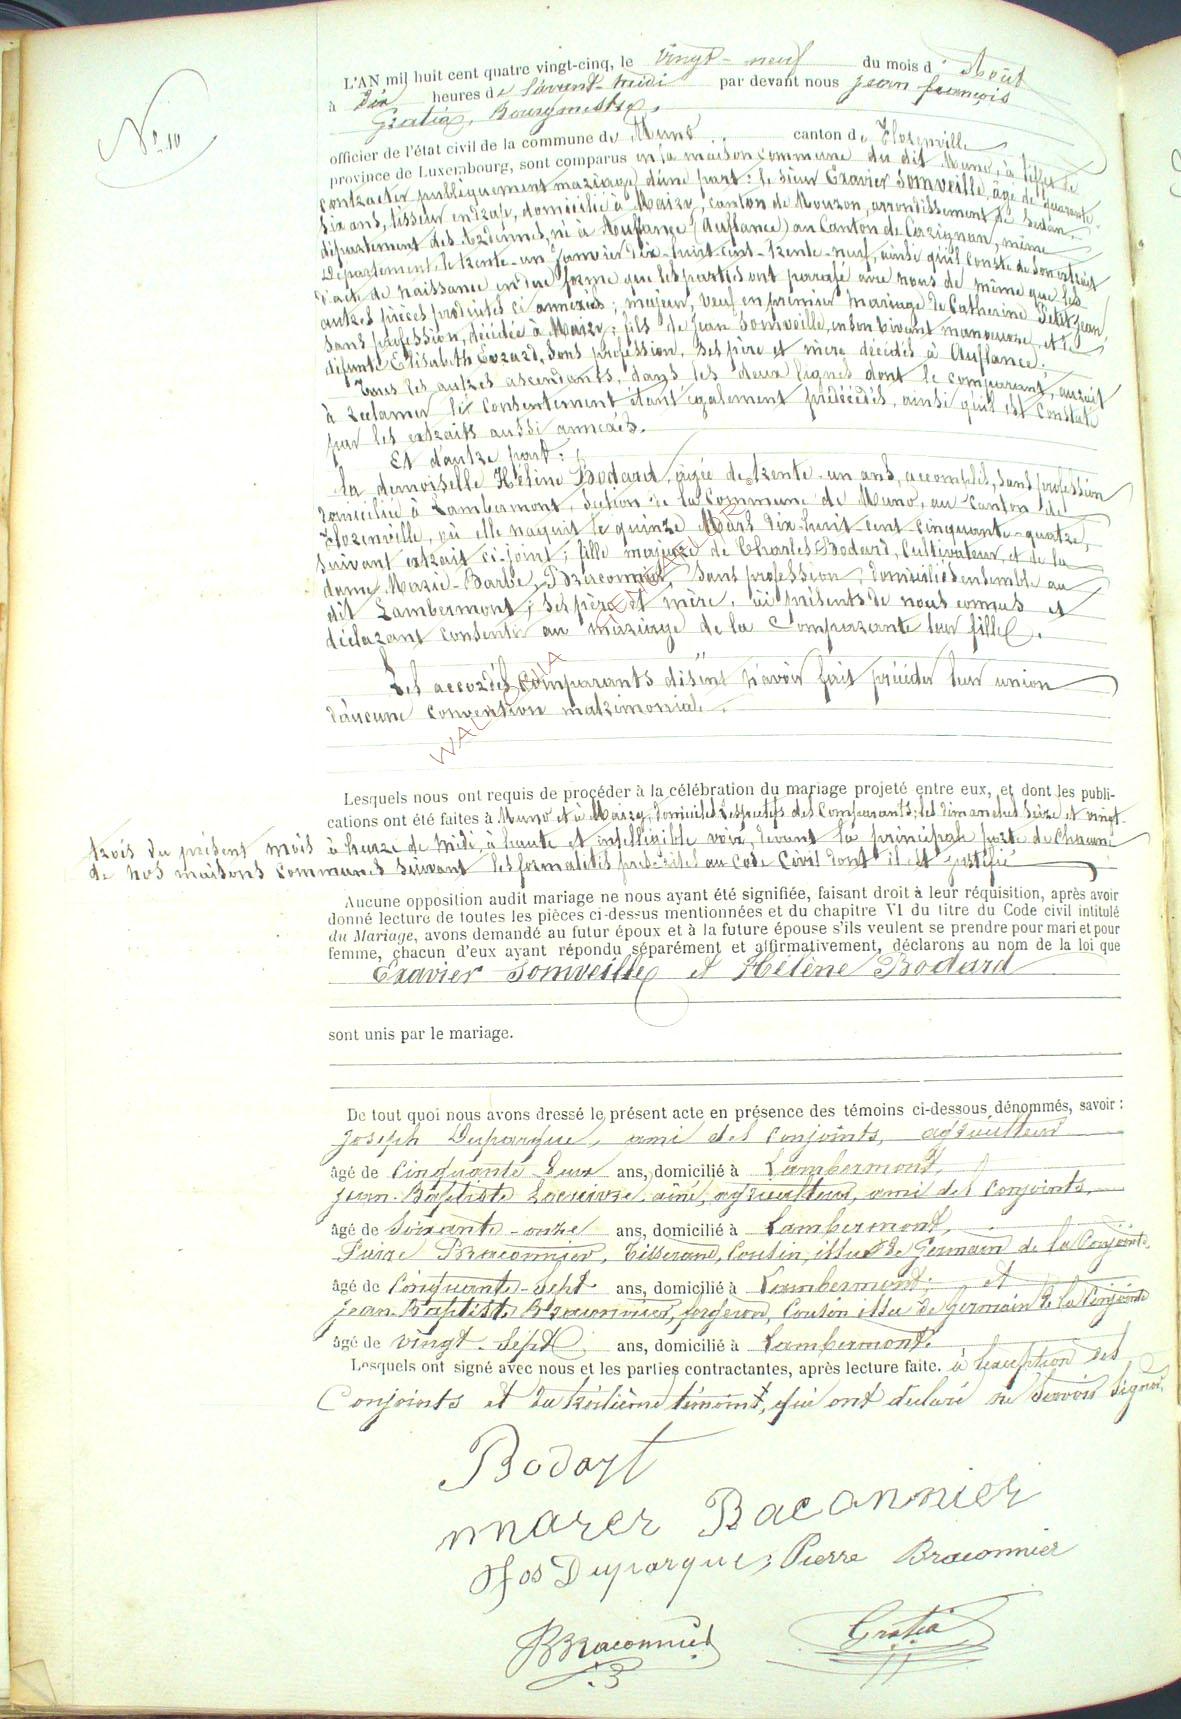 N° 10
L'AN mil huit cent quatre vingt-cinq, le vingt-neuf du mois d'Août
à Dix heures de l'avant-midi par devant nous Jean François
Gratia, Bourgmestre,
officier de l'état civil de la commune de Muno canton de Florenville
province de Luxembourg, sont comparus en la maison commune du dit Muno, à l'effet de
contracter publiquement mariage, d'une part: le sieur Exavier Somveille, âgé de quarante-
six ans, tisseur en drap, domicilié à Mairy, canton de Mouzon, arrondissement de Sedan,
département des Ardennes, né à Auflance (Auflance) au Canton de Carignan, même
Département, le trente-un Janvier Dix-huit-cent-trente-neuf, ainsi qu'il conste de son extrait
d'acte de naissance en due forme que les parties ont parafé avec nous de même que les
autres pièces produites ci annexées; majeur, veuf en premier mariage de Catherine Petitjean,
sans profession, décédée à Mairy; fils de Jean Somveille, en son vivant manœuvre, et de
défunte Elisabeth Evrard, sans profession, ses père et mère décédés à Auflance;
Tous les autres ascendants, dans les deux lignes dont le comparant, aurait
à réclamer le consentement étant également prédécédés, ainsi qu'il est constaté
par les extraits aussi annexés.
Et d'autre part:
la demoiselle Hélène Bodard, âgée de trente-un ans, accomplis, sans profession
domiciliée à Lambermont, section de la Commune de Muno, au canton de
Florenville, où elle naquit le quinze Mars dix-huit-cent-cinquante-quatre,
suivant extrait ci-joint; fille majeure de Charles Bodard, Cultivateur, et de la
dame Marie-Barbe Braconnier, sans profession, domiciliés ensemble au
dit Lambermont; ses père et mère, ici présents de nous connus et
déclarant consentir au mariage de la Comparante leur fille.
Les accordés comparants disent n'avoir fait précéder leur union
d'aucune convention matrimoniale.
WALLONIA BENGAFLOR
Lesquels nous ont requis de procéder à la célébration du mariage projeté entre eux, et dont les publi-
cations ont été faites à Muno et à Mairy, domiciles respectifs des Comparants; les dimanches seize et vingt-
trois du présent mois à heure de Midi, à haute et intelligible voix, devant la principale porte de Chacune
de nos maisons communes suivant les formalités prescrites au Code Civil dont il est justifié
Aucune opposition audit mariage ne nous ayant été signifiée, faisant droit à leur réquisition, après avoir
donné lecture de toutes les pièces ci-dessus mentionnées et du chapitre VI du titre du Code civil intitulé
du Mariage, avons demandé au futur époux et à la future épouse s'ils veulent se prendre pour mari et pour
femme, chacun d'eux ayant répondu séparément et affirmativement, déclarons au nom de la loi que
Exavier Somveille et Hélène Bodard
sont unis par le mariage.
De tout quoi nous avons dressé le présent acte en présence des témoins ci-dessous dénommés, savoir:
Joseph Duparque, ami des conjoints, agriculteur
âgé de Cinquante-deux ans, domicilié à Lambermont,
Jean-Baptiste aîné, agriculteur, ami des conjoints,
âgé de Soixante-onze ans, domicilié à Lambermont,
Pierre Braconnier, Tisserand, Cousin, issu de Germain de la Conjointe,
âgé de Cinquante-sept ans, domicilié à Lambermont, et
Jean-Baptiste Braconnier, forgeron, Cousin issu de Germain de la Conjointe
âgé de vingt-sept ans, domicilié à Lambermont.
Lesquels ont signé avec nous et les parties contractantes, après lecture faite. à l'exception des
Conjoints et du témoin, qui ont déclaré ne savoir signer.
Bodart
marer Baconnier
Jos Duparque, Pierre Braconnier
Braconnier
Gratia